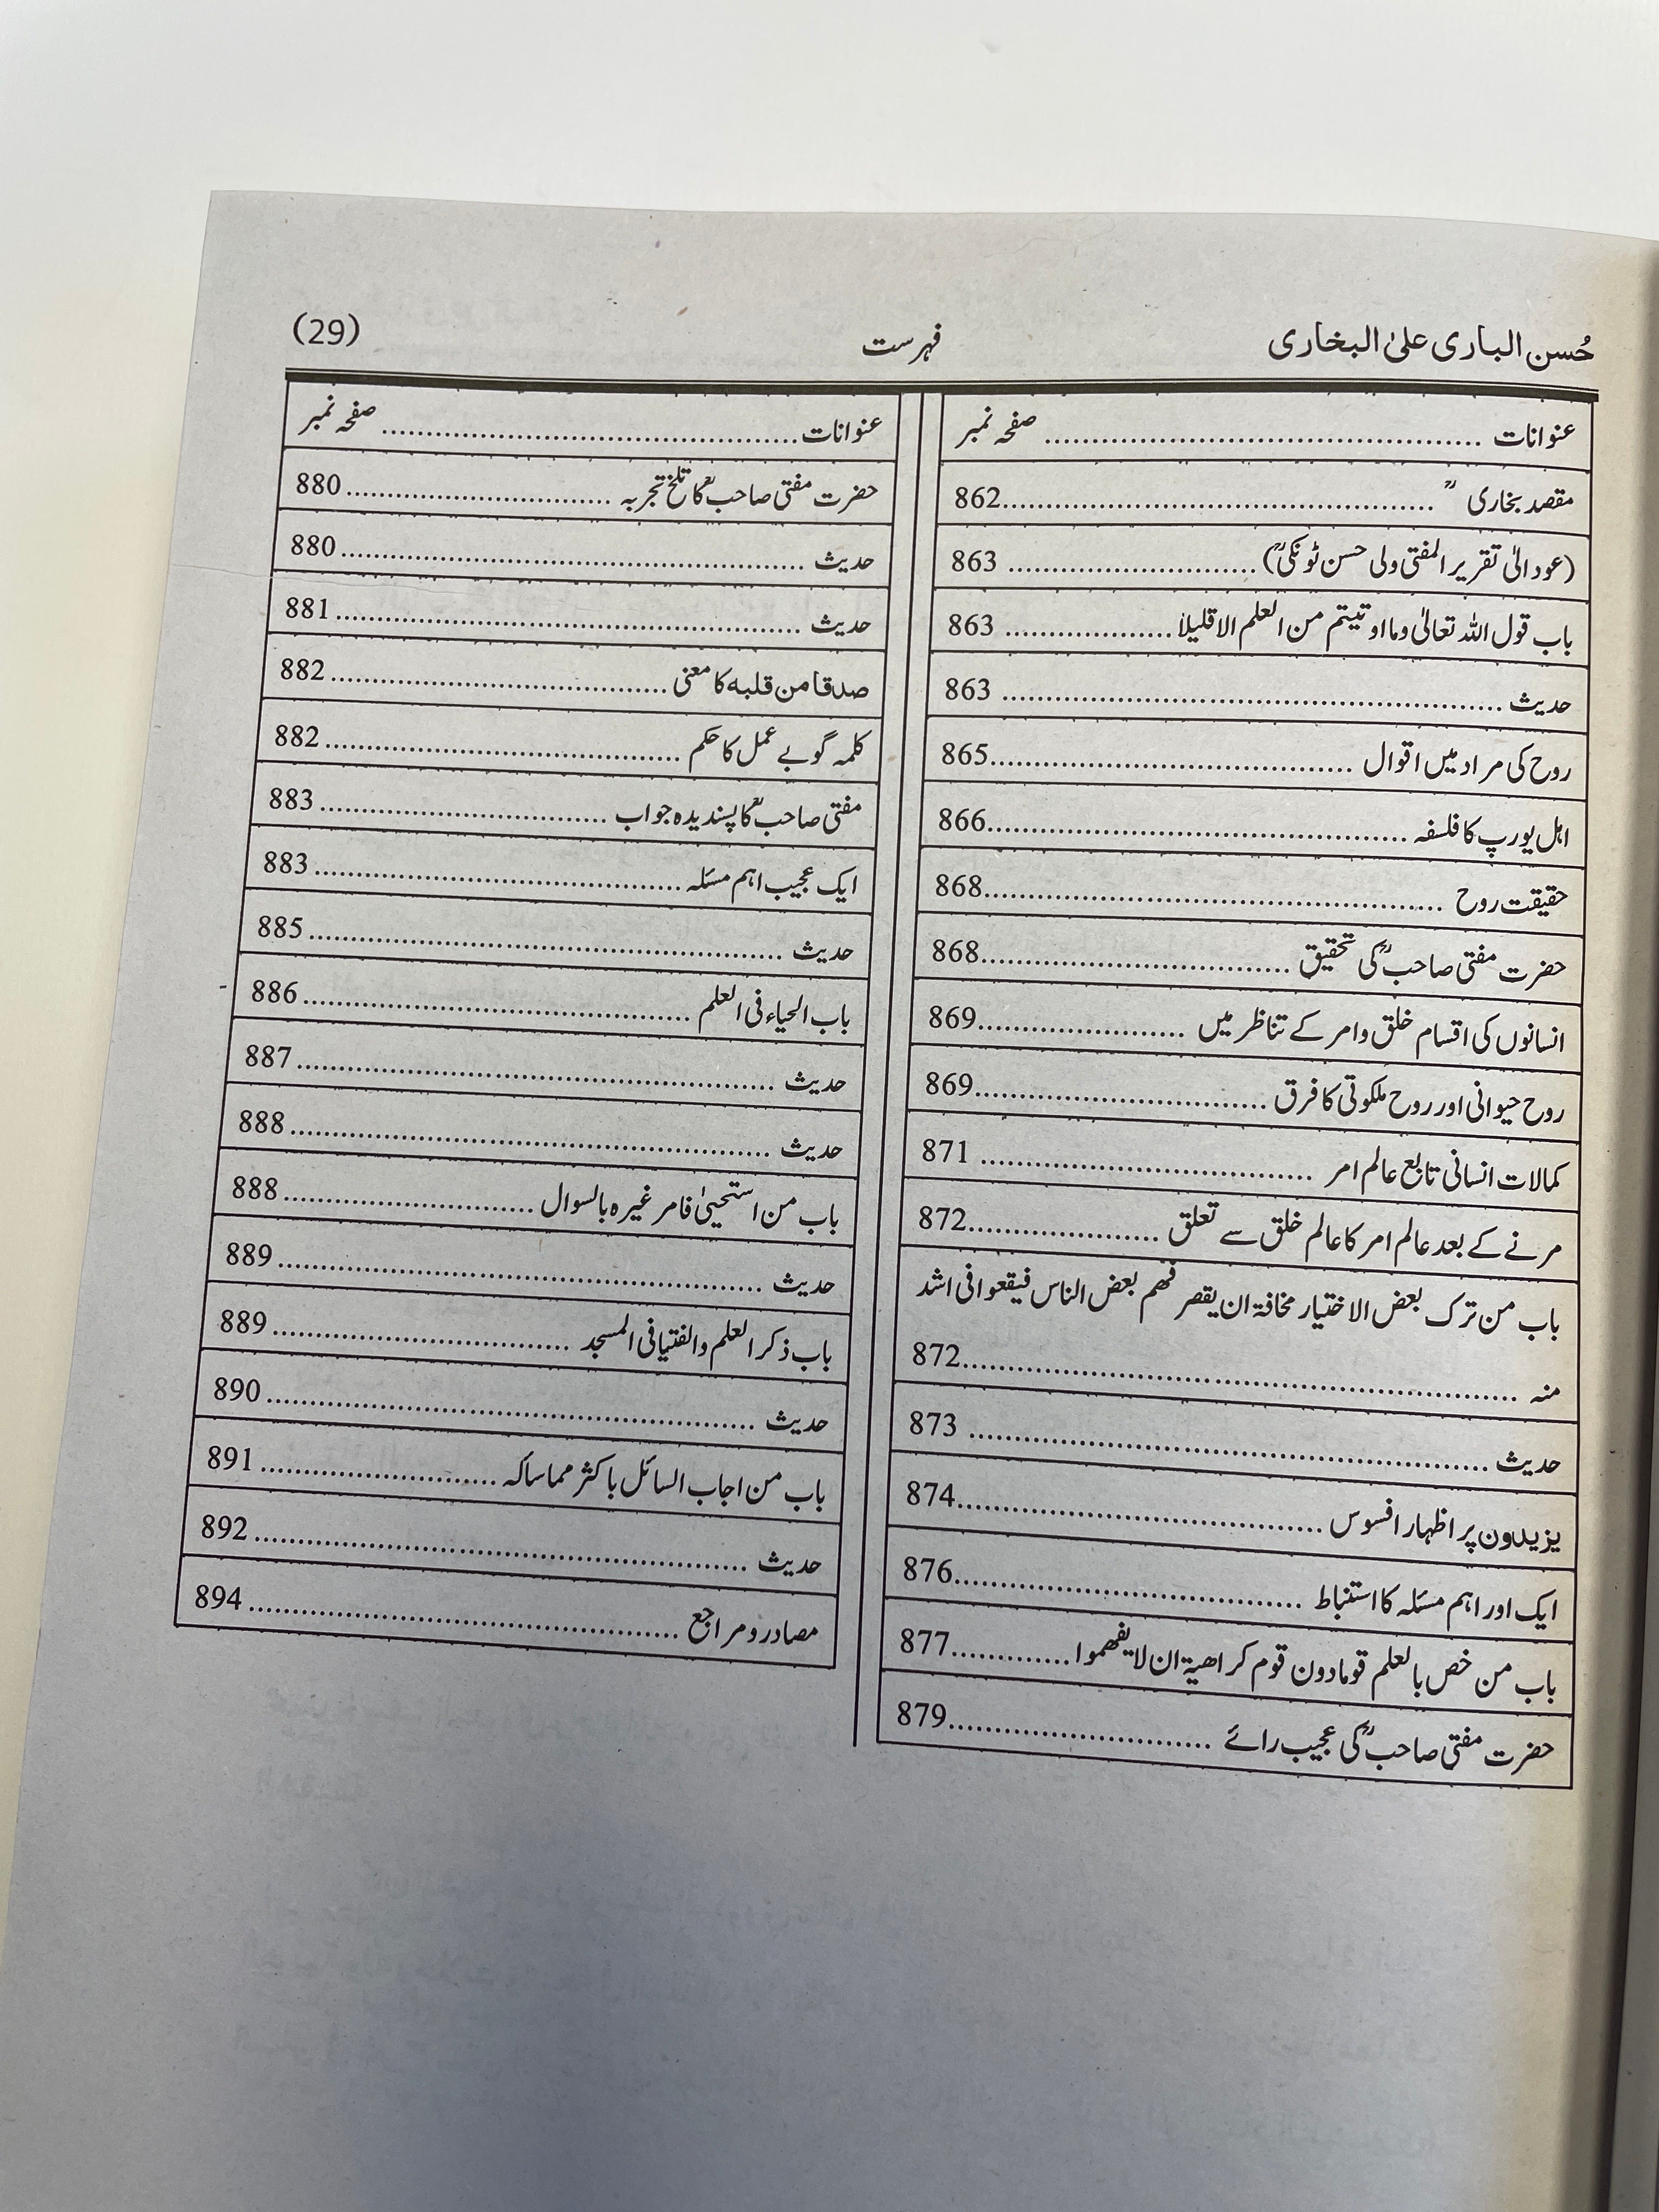 حُسن الباری علیٰ البخاری
فہرست
(29)
عنوانات ........ صفحہ نمبر
مقصد بخاریؒ ........ 862
(عود الیٰ تقریر المفتی ولی حسن ٹونکیؒ) ........ 863
باب قول اللہ تعالیٰ وما اوتیتم من العلم الا قلیلا ........ 863
حدیث ........ 863
روح کی مراد میں اقوال ........ 865
اہل یورپ کا فلسفہ ........ 866
حقیقت روح ........ 868
حضرت مفتی صاحبؒ کی تحقیق ........ 868
انسانوں کی اقسام خلق وامر کے تناظر میں ........ 869
روح حیوانی اور روح ملکوتی کا فرق ........ 869
کمالات انسانی تابع عالم امر ........ 871
مرنے کے بعد عالم امر کا عالم خلق سے تعلق ........ 872
باب من ترک بعض الاختیار مخافۃ ان یقصر فھم بعض الناس فیقعوا فی اشد
منہ ........ 872
حدیث ........ 873
یزیدیون پر اظہار افسوس ........ 874
ایک اور اہم مسئلہ کا استنباط ........ 876
باب من خص بالعلم قوما دون قوم کراھیۃ ان لا یفھموا ........ 877
حضرت مفتی صاحبؒ کی عجیب رائے ........ 879
عنوانات ........ صفحہ نمبر
حضرت مفتی صاحبؒ کا تلخ تجربہ ........ 880
حدیث ........ 880
حدیث ........ 881
صدقا من قلبه کا معنی ........ 882
کلمہ گو بے عمل کا حکم ........ 882
مفتی صاحبؒ کا پسندیدہ جواب ........ 883
ایک عجیب اہم مسئلہ ........ 883
حدیث ........ 885
باب الحیاء فی العلم ........ 886
حدیث ........ 887
حدیث ........ 888
باب من استحییٰ فامر غیرہ بالسوال ........ 888
حدیث ........ 889
باب ذکر العلم والفتیا فی المسجد ........ 889
حدیث ........ 890
باب من اجاب السائل باکثر مما سألہ ........ 891
حدیث ........ 892
مصادر و مراجع ........ 894